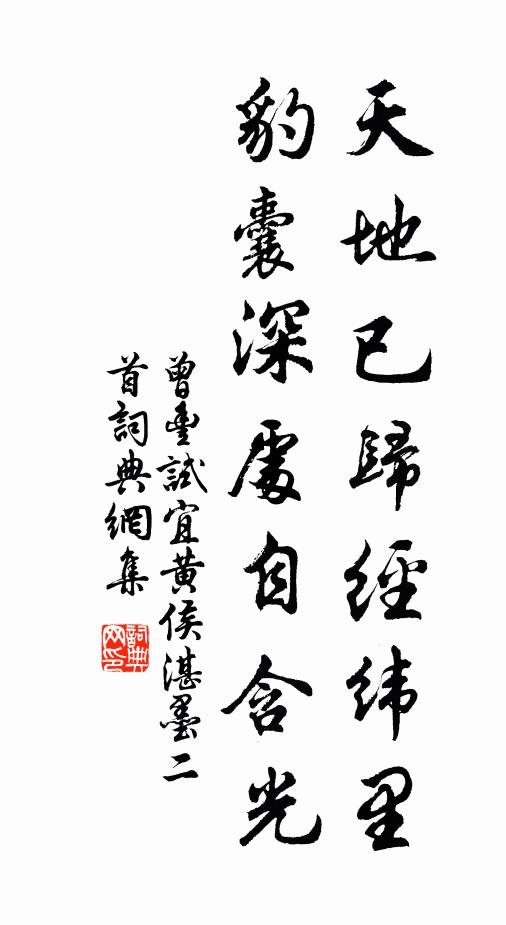 天地已歸經緯里
豹囊深處自含光
曾豐試宜黃侯湛墨二
首詞典網集
詞典
網印